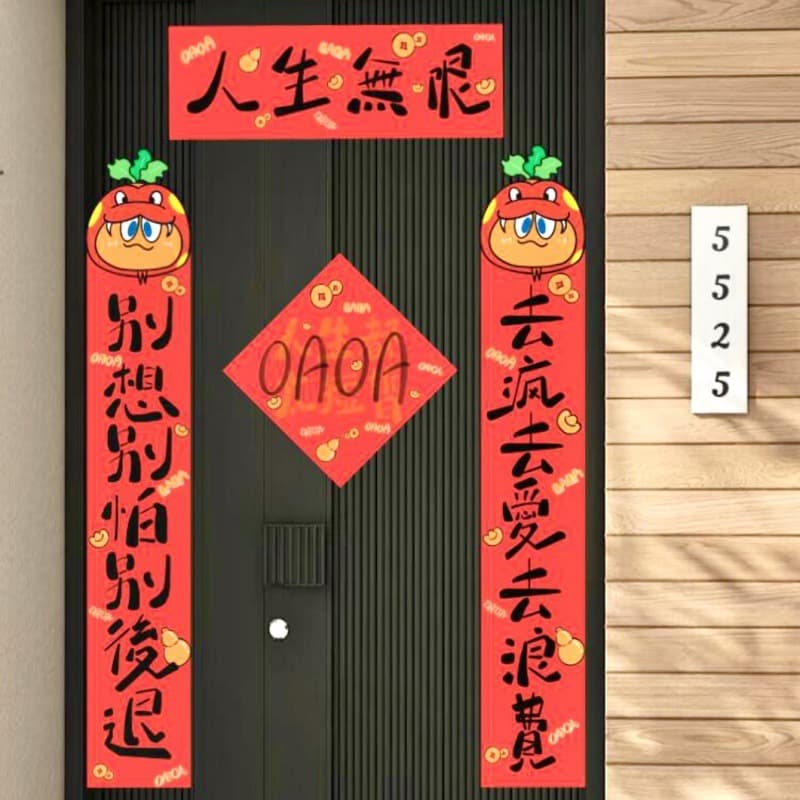 人生無限
去疯去愛去浪費
別想別怕別後退
OAOA
5525